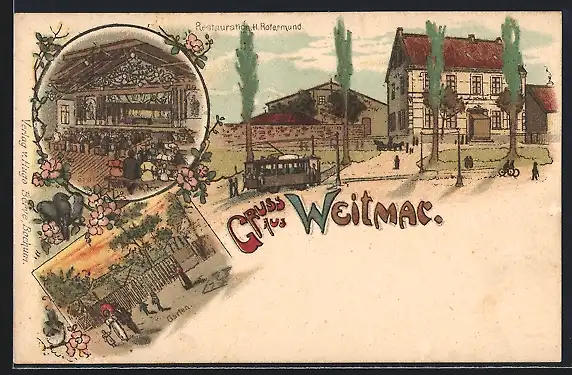 Restauration H. Rotermund.
Gruss
aus
Weitmar.
Garten.
Verlag v. Hugo
Bochum.